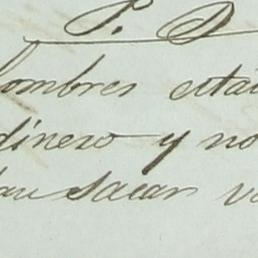 P. D
hombres estan
dinero y no
sacar